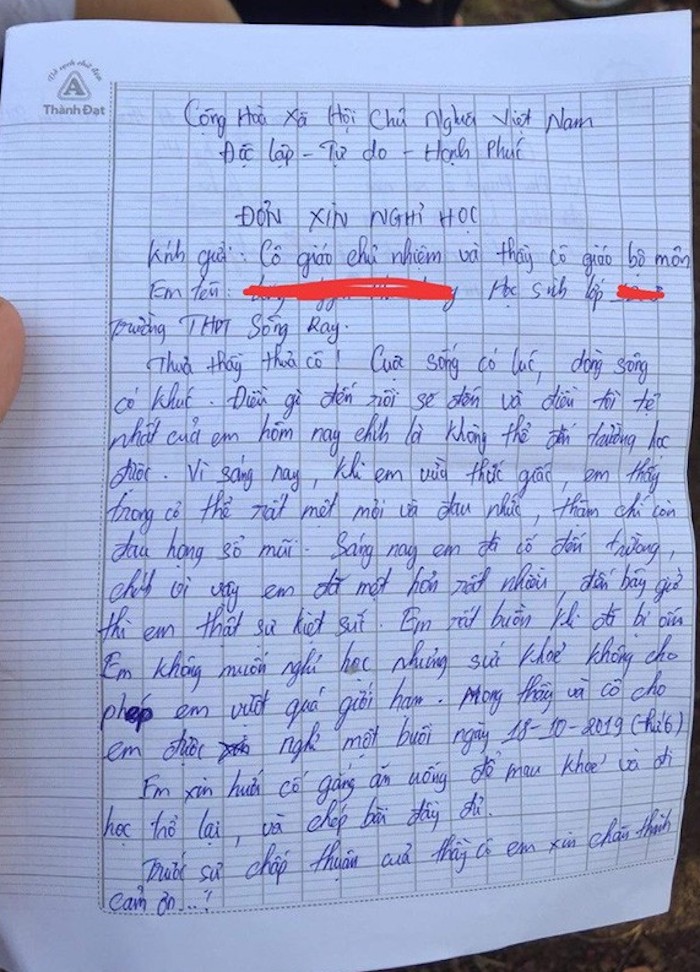 Nở cách chữ đẹp
Thành Đạt
Cộng Hoà Xã Hội Chủ Nghĩa Việt Nam
Độc lập - Tự do - Hạnh Phúc
ĐƠN XIN NGHỈ HỌC
Kính gửi: Cô giáo chủ nhiệm và thầy cô giáo bộ môn
Em tên: Học sinh lớp
Trường THPT Sông Ray.
Thưa thầy thưa cô! Cuộc sống có lúc, dòng sông
có khúc. Điều gì đến rồi sẽ đến và điều tồi tệ
nhất của em hôm nay chính là không thể đến trường học
được. Vì sáng nay, khi em vừa thức giấc, em thấy
trong cơ thể rất mệt mỏi và đau nhức, thậm chí còn
đau họng sổ mũi. Sáng nay em đã cố đến trường,
chính vì vậy em đã mệt hơn rất nhiều, đến bây giờ
thì em thật sự kiệt sức. Em rất buồn khi đã bị ốm
Em không muốn nghỉ học nhưng sức khoẻ không cho
phép em vượt quá giới hạn. Mong thầy và cô cho
em được nghỉ một buổi ngày 18-10-2019 (thứ 6)
Em xin hứa cố gắng ăn uống để mau khoẻ và đi
học trở lại, và chép bài đầy đủ.
Trước sự chấp thuận của thầy cô em xin chân thành
cảm ơn...!